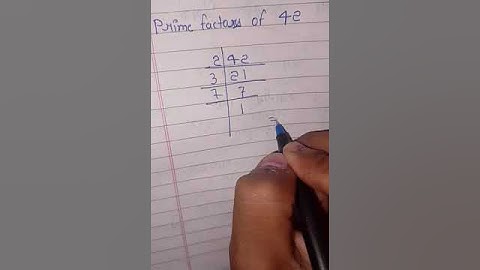 Prime factors of 42
2 42
3 21
7 7
1
=